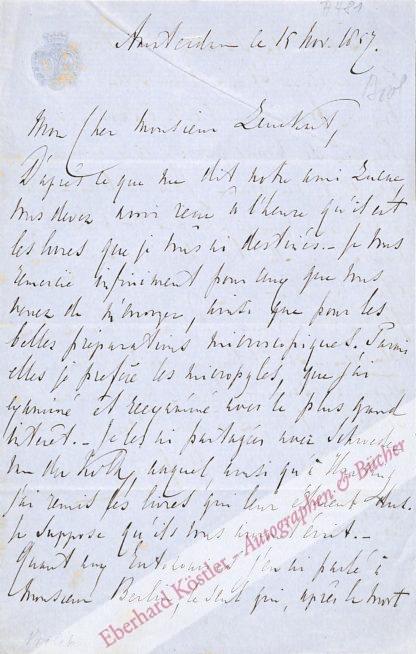 Amsterdam le 15 Nov. 1857.
Mon Cher Monsieur
D'après ce que me dit notre ami
vous devez avoir reçu à l'heure qu'il est
les livres que je vous ai destinés. – Je vous
remercie infiniment pour ceux que vous
venez de m'envoyer, ainsi que pour les
belles préparations microscopiques. Parmi
elles je préfère les micropyles, que j'ai
examiné et réexaminé avec le plus grand
intérêt. – Je les ai partagées avec
van der Kolk, auquel, ainsi qu'à
j'ai remis les livres qui leur
Je suppose qu'ils vous – 
Quant aux j'en ai parlé à
Monsieur le seul qui, après la mort
Eberhard Köstler – Autographen & Bücher